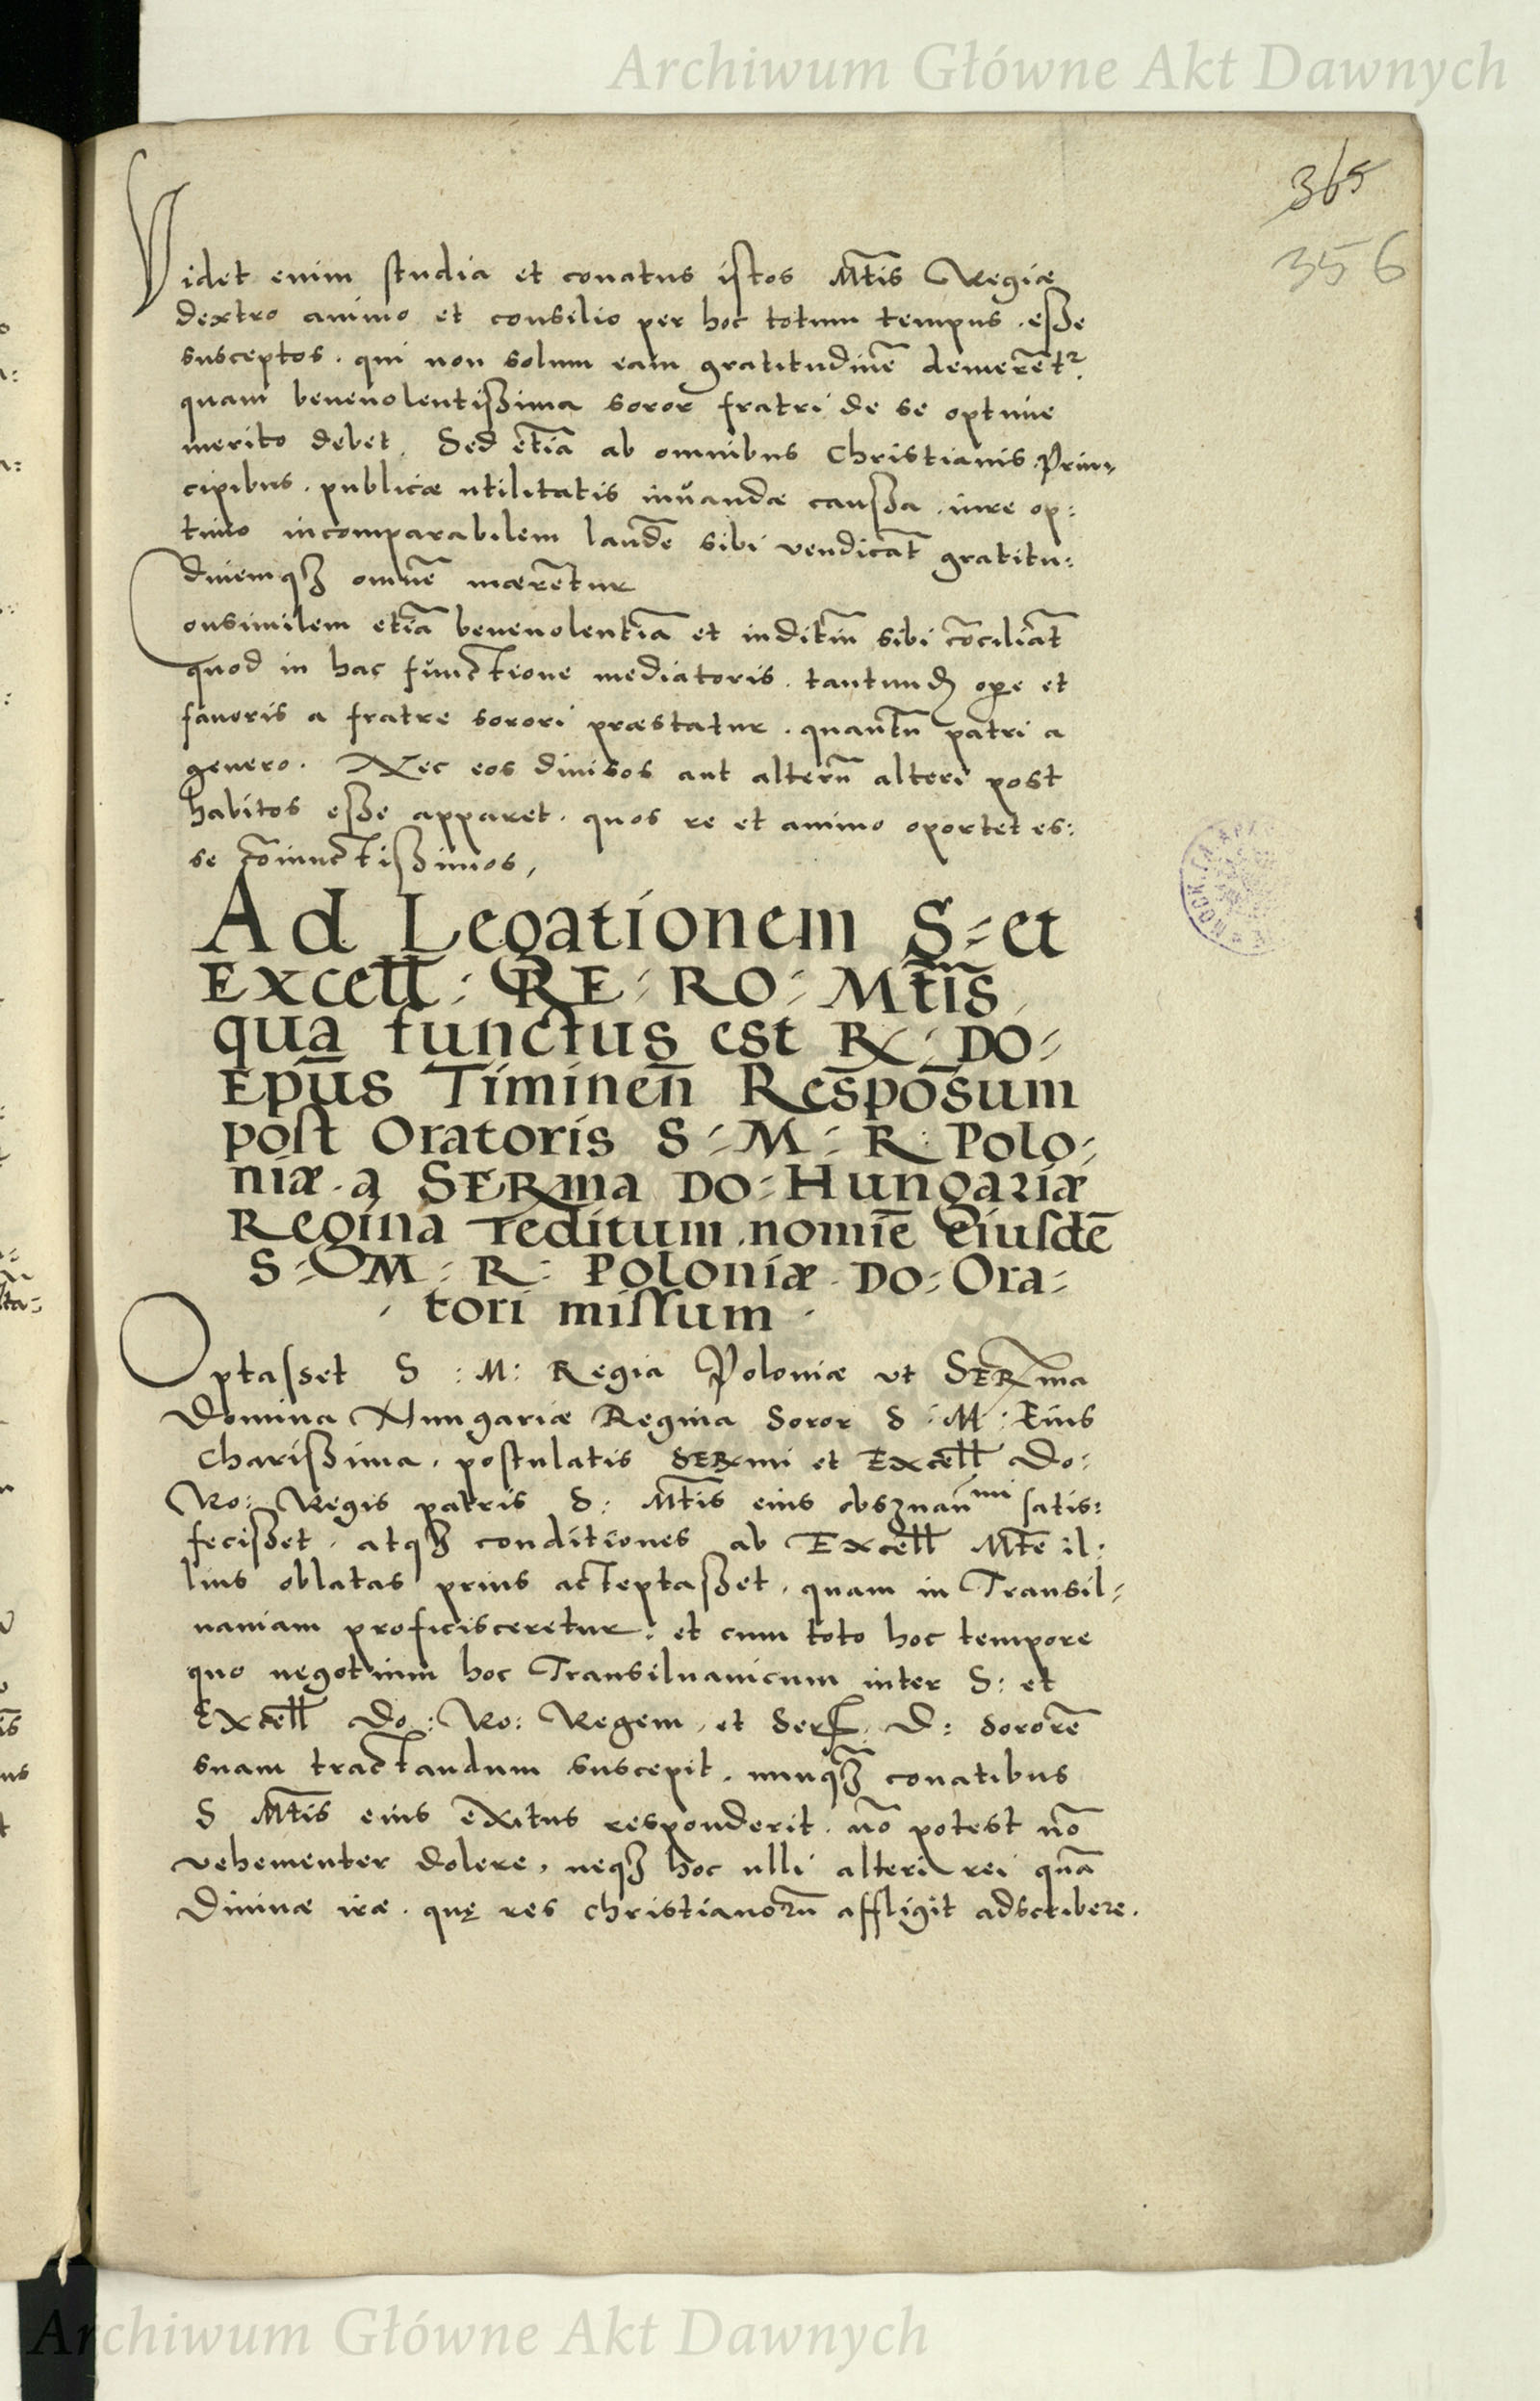 Archiwum Główne Akt Dawnych
365
356
Videt enim studia et conatus istos Mt̃is Regiæ
dextro animo et consilio per hoc totum tempus . esse
susceptos . qui non solum eam gratitudinē demerẽtr
quam beneuolentissima soror fratri de se optime
merito debet . Sed etiā ab omnibus Christianis Prin,
cipibus . publicæ utilitatis iuuandæ caussa . iure op:
timo incomparabilem laudē sibi vendicāt gratitu:
dinemqꝫ omnē mærētur
Consimilem etiā beneuolentiā et inditiū sibi cōciliāt
quod in hac functione mediatoris . tantund opē et
fauoris a fratre sorori præstatur . quantū patri a
genero . Nec eos diuisos aut alterū alteri post
habitos esse apparet . quos re et animo oportet es:
se cōiunctissimos ,
Ad Legationem S = et
Excell̃ : RE : RO : Mt̃is
qua functus est R : DO :
Epūs Timineñ Respōsum
post Oratoris S : M : R : Polo:
niæ . a SERma DO : Hungariæ
Regina reditum . nomiē eiusdē
S : M : R : Poloniæ . DO : Ora :
tori missum
Optasset S : M : Regia Poloniæ ut SERma
Domina Hungariæ Regina Soror S : M : Eius
Charissima , postulatis SERmi et Excell̃ Do :
Ro : Regis patris S : Mt̃is eius satis:
fecisset , atqꝫ conditiones ab Excell̃ Mt̃e il:
lius oblatas prius acceptasset , quam in Transil:
uaniam proficisceretur : et cum toto hoc tempore
quo negotium hoc Transiluanicum inter S : et
Excell̃ Do : Ro : Regem , et Ser D : Sororē
suam tractandum suscepit , nunqꝫ conatibus
S Mt̃is eius exitus responderit . nō potest nō
vehementer dolere , neqꝫ hoc ulli alteri rei quā
Diuinæ iræ . quę res christianorū affligit adscribere .
Archiwum Główne Akt Dawnych